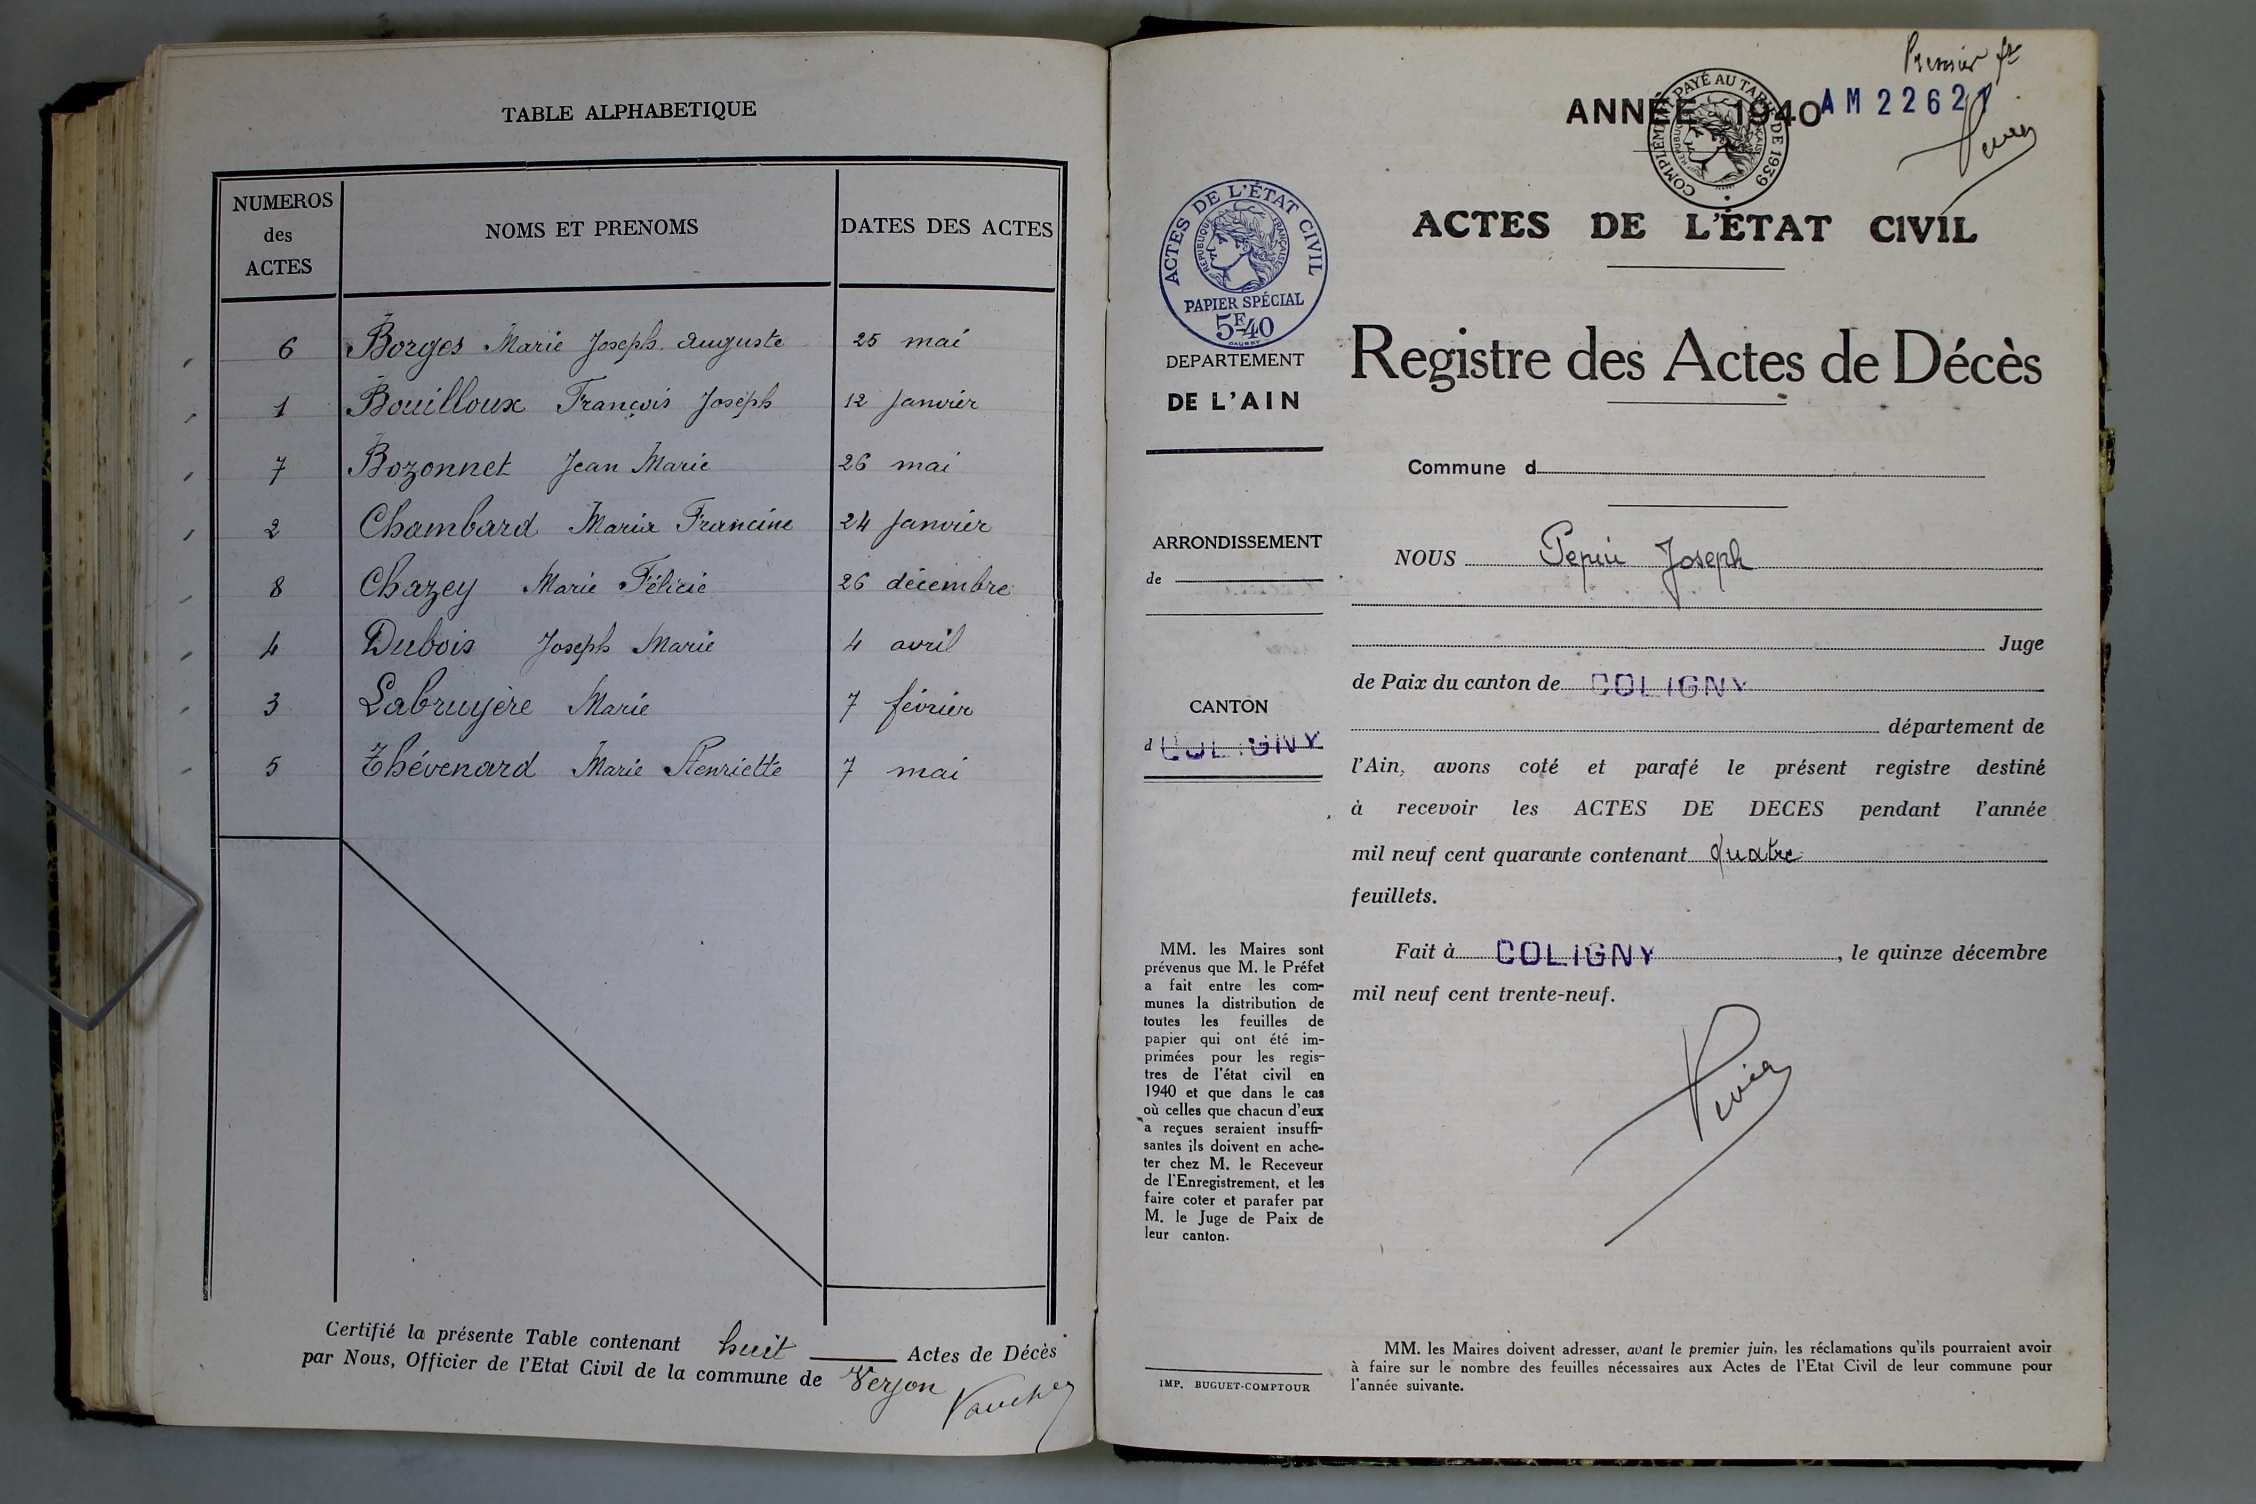 TABLE ALPHABETIQUE
NUMEROS des ACTES
NOMS ET PRENOMS
DATES DES ACTES
6 Borges Marie Joseph Auguste 25 mai
1 Bouilloux François Joseph 12 Janvier
7 Bozonnet Jean Marie 26 mai
2 Chambard Maria Francine 24 Janvier
8 Chazey Marie Félicie 26 décembre
4 Dubois Joseph Marie 4 avril
3 Labruyère Marie 7 février
5 Thévenard Marie Henriette 7 mai
Certifié la présente Table contenant huit Actes de Décès
par Nous, Officier de l'Etat Civil de la commune de Verjon
Premier
ANNÉE 1940
AM 2262
COMPLÉMENT PAYÉ AU TARIF DE 1939
ACTES DE L'ÉTAT CIVIL
ACTES DE L'ÉTAT CIVIL
RÉPUBLIQUE FRANÇAISE
PAPIER SPÉCIAL
5F40
DEPARTEMENT
DE L'AIN
ARRONDISSEMENT
de
CANTON
d COLIGNY
MM. les Maires sont
prévenus que M. le Préfet
a fait entre les com-
munes la distribution de
toutes les feuilles de
papier qui ont été im-
primées pour les regis-
tres de l'état civil en
1940 et que dans le cas
où celles que chacun d'eux
a reçues seraient insuffi-
santes ils doivent en ache-
ter chez M. le Receveur
de l'Enregistrement, et les
faire coter et parafer par
M. le Juge de Paix de
leur canton.
IMP. BUGUET-COMPTOUR
Registre des Actes de Décès
Commune d
NOUS Pepin Joseph
Juge
de Paix du canton de COLIGNY
département de
l'Ain, avons coté et parafé le présent registre destiné
à recevoir les ACTES DE DECES pendant l'année
mil neuf cent quarante contenant quatre
feuillets.
Fait à COLIGNY, le quinze décembre
mil neuf cent trente-neuf.
MM. les Maires doivent adresser, avant le premier juin, les réclamations qu'ils pourraient avoir
à faire sur le nombre des feuilles nécessaires aux Actes de l'Etat Civil de leur commune pour
l'année suivante.